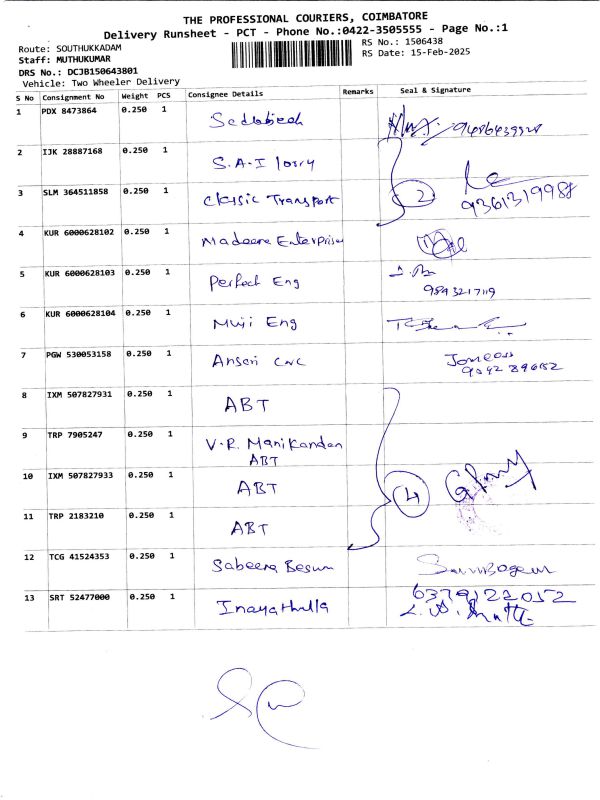 THE PROFESSIONAL COURIERS, COIMBATORE
Delivery Runsheet - PCT - Phone No.:0422-3505555 - Page No.:1
Route: SOUTHUKKADAM
RS No.: 1506438
Staff: MUTHUKUMAR
RS Date: 15-Feb-2025
DRS No.: DCJB150643801
Vehicle: Two Wheeler Delivery
S No Consignment No Weight PCS Consignee Details Remarks Seal & Signature
1 PDX 8473864 0.250 1
2 IJK 28887168 0.250 1 S.A.I lorry
3 SLM 364511858 0.250 1 Classic Transport 2 9361319988
4 KUR 6000628102 0.250 1 Madeena Enterprises
5 KUR 6000628103 0.250 1 Perfect Eng
6 KUR 6000628104 0.250 1 Muji Eng
7 PGW 530053158 0.250 1 Ansari CNC
8 IXM 507827931 0.250 1 ABT
9 TRP 7905247 0.250 1 V.R. Manikandan
ABT
10 IXM 507827933 0.250 1 ABT 4
11 TRP 2183210 0.250 1 ABT
12 TCG 41524353 0.250 1 Sabeera Begum
13 SRT 52477000 0.250 1 Inayathulla 6379122052